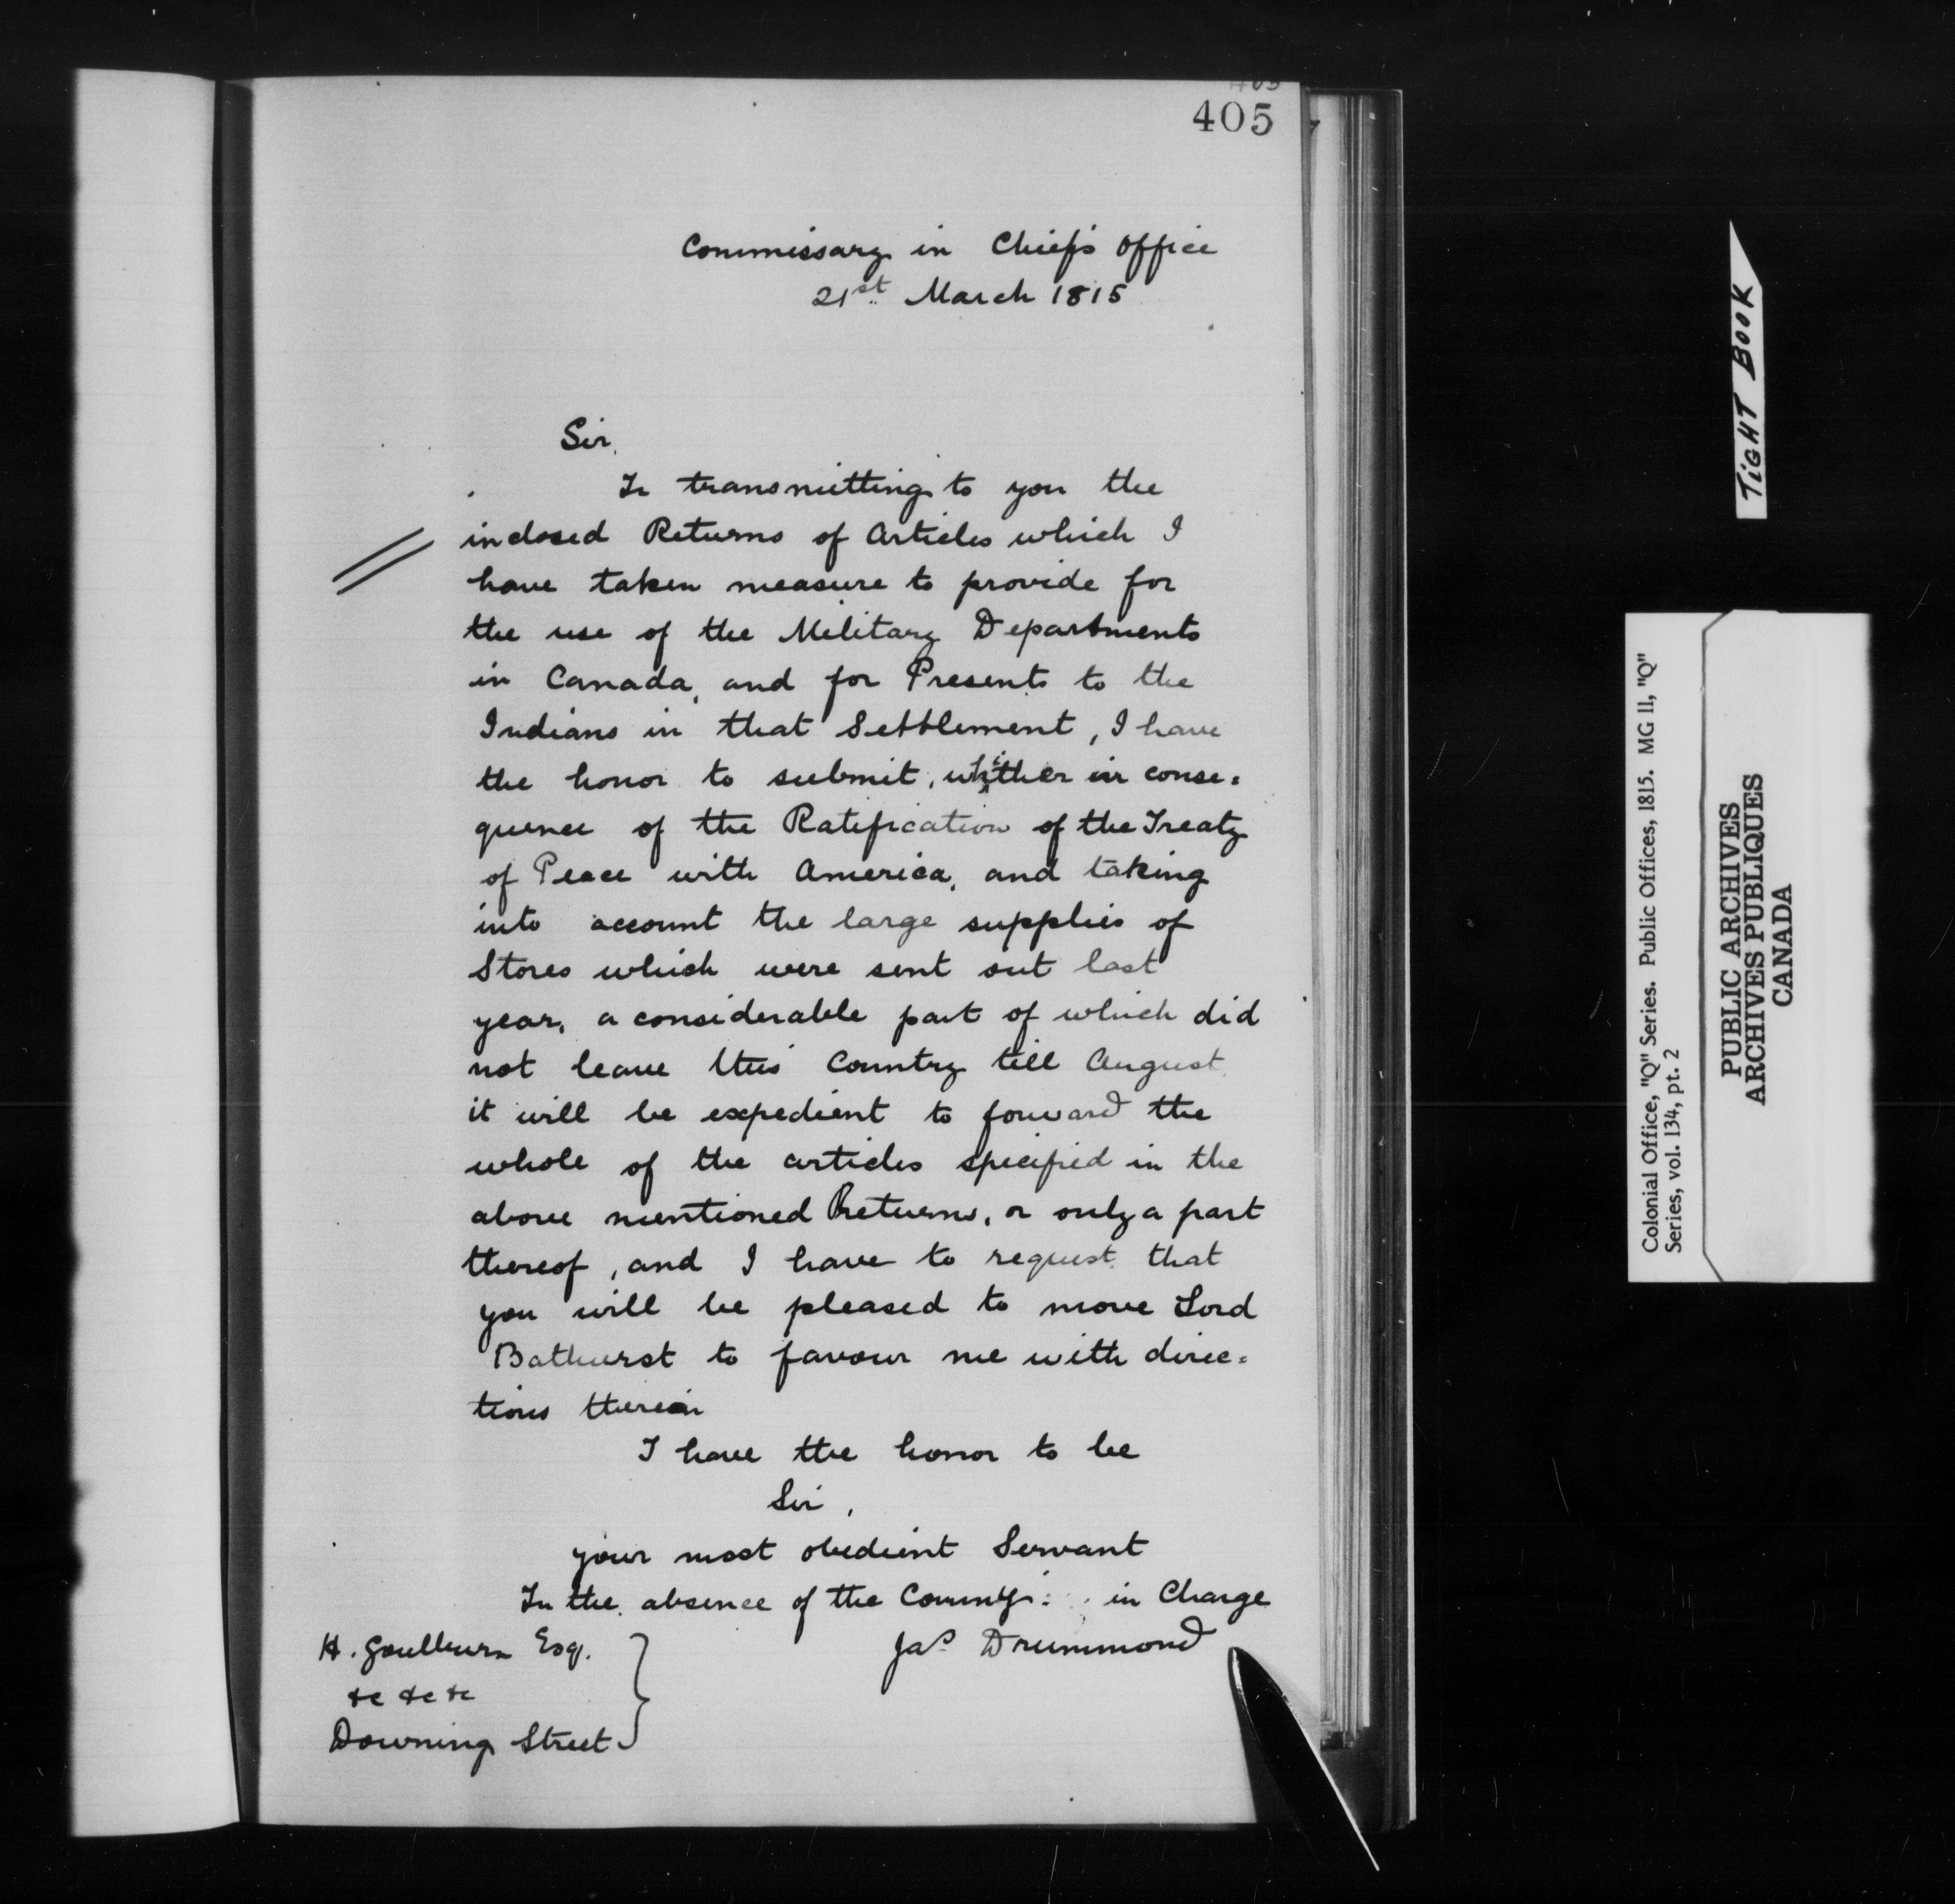 405
Commissary in Chief's Office
21st March 1815
Sir,
In transmitting to you the
inclosed Returns of Articles which I
have taken measure to provide for
the use of the Military Departments
in Canada, and for Presents to the
Indians in that Settlement, I have
the honor to submit, whether in conse=
quence of the Ratification of the Treaty
of Peace with America, and taking
into account the large supplies of
Stores which were sent out last
year, a considerable part of which did
not leave this Country till August
it will be expedient to forward the
whole of the articles specified in the
above mentioned Returns, or only a part
thereof, and I have to request that
you will be pleased to move Lord
Bathurst to favour me with direc=
tions therein
I have the honor to be
Sir,
your most obedient Servant
In the absence of the Commy: in Charge
Jas Drummond
H. Goulburn Esq.
&c &c &c
Downing Street
TIGHT BOOK
Colonial Office, "Q" Series. Public Offices, 1815. MG 11, "Q"
Series, vol. 134, pt. 2
PUBLIC ARCHIVES
ARCHIVES PUBLIQUES
CANADA